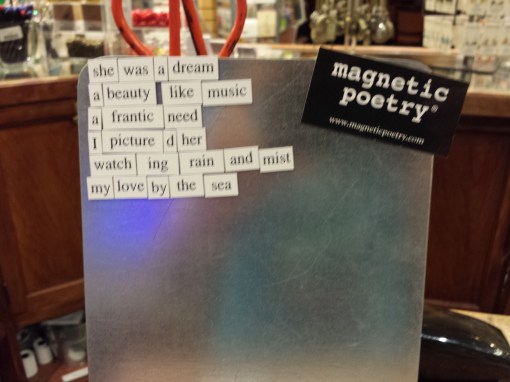 she was a dream
a beauty like music
a frantic need
I picture d her
watch ing rain and mist
my love by the sea
magnetic
poetry®
www.magneticpoetry.com